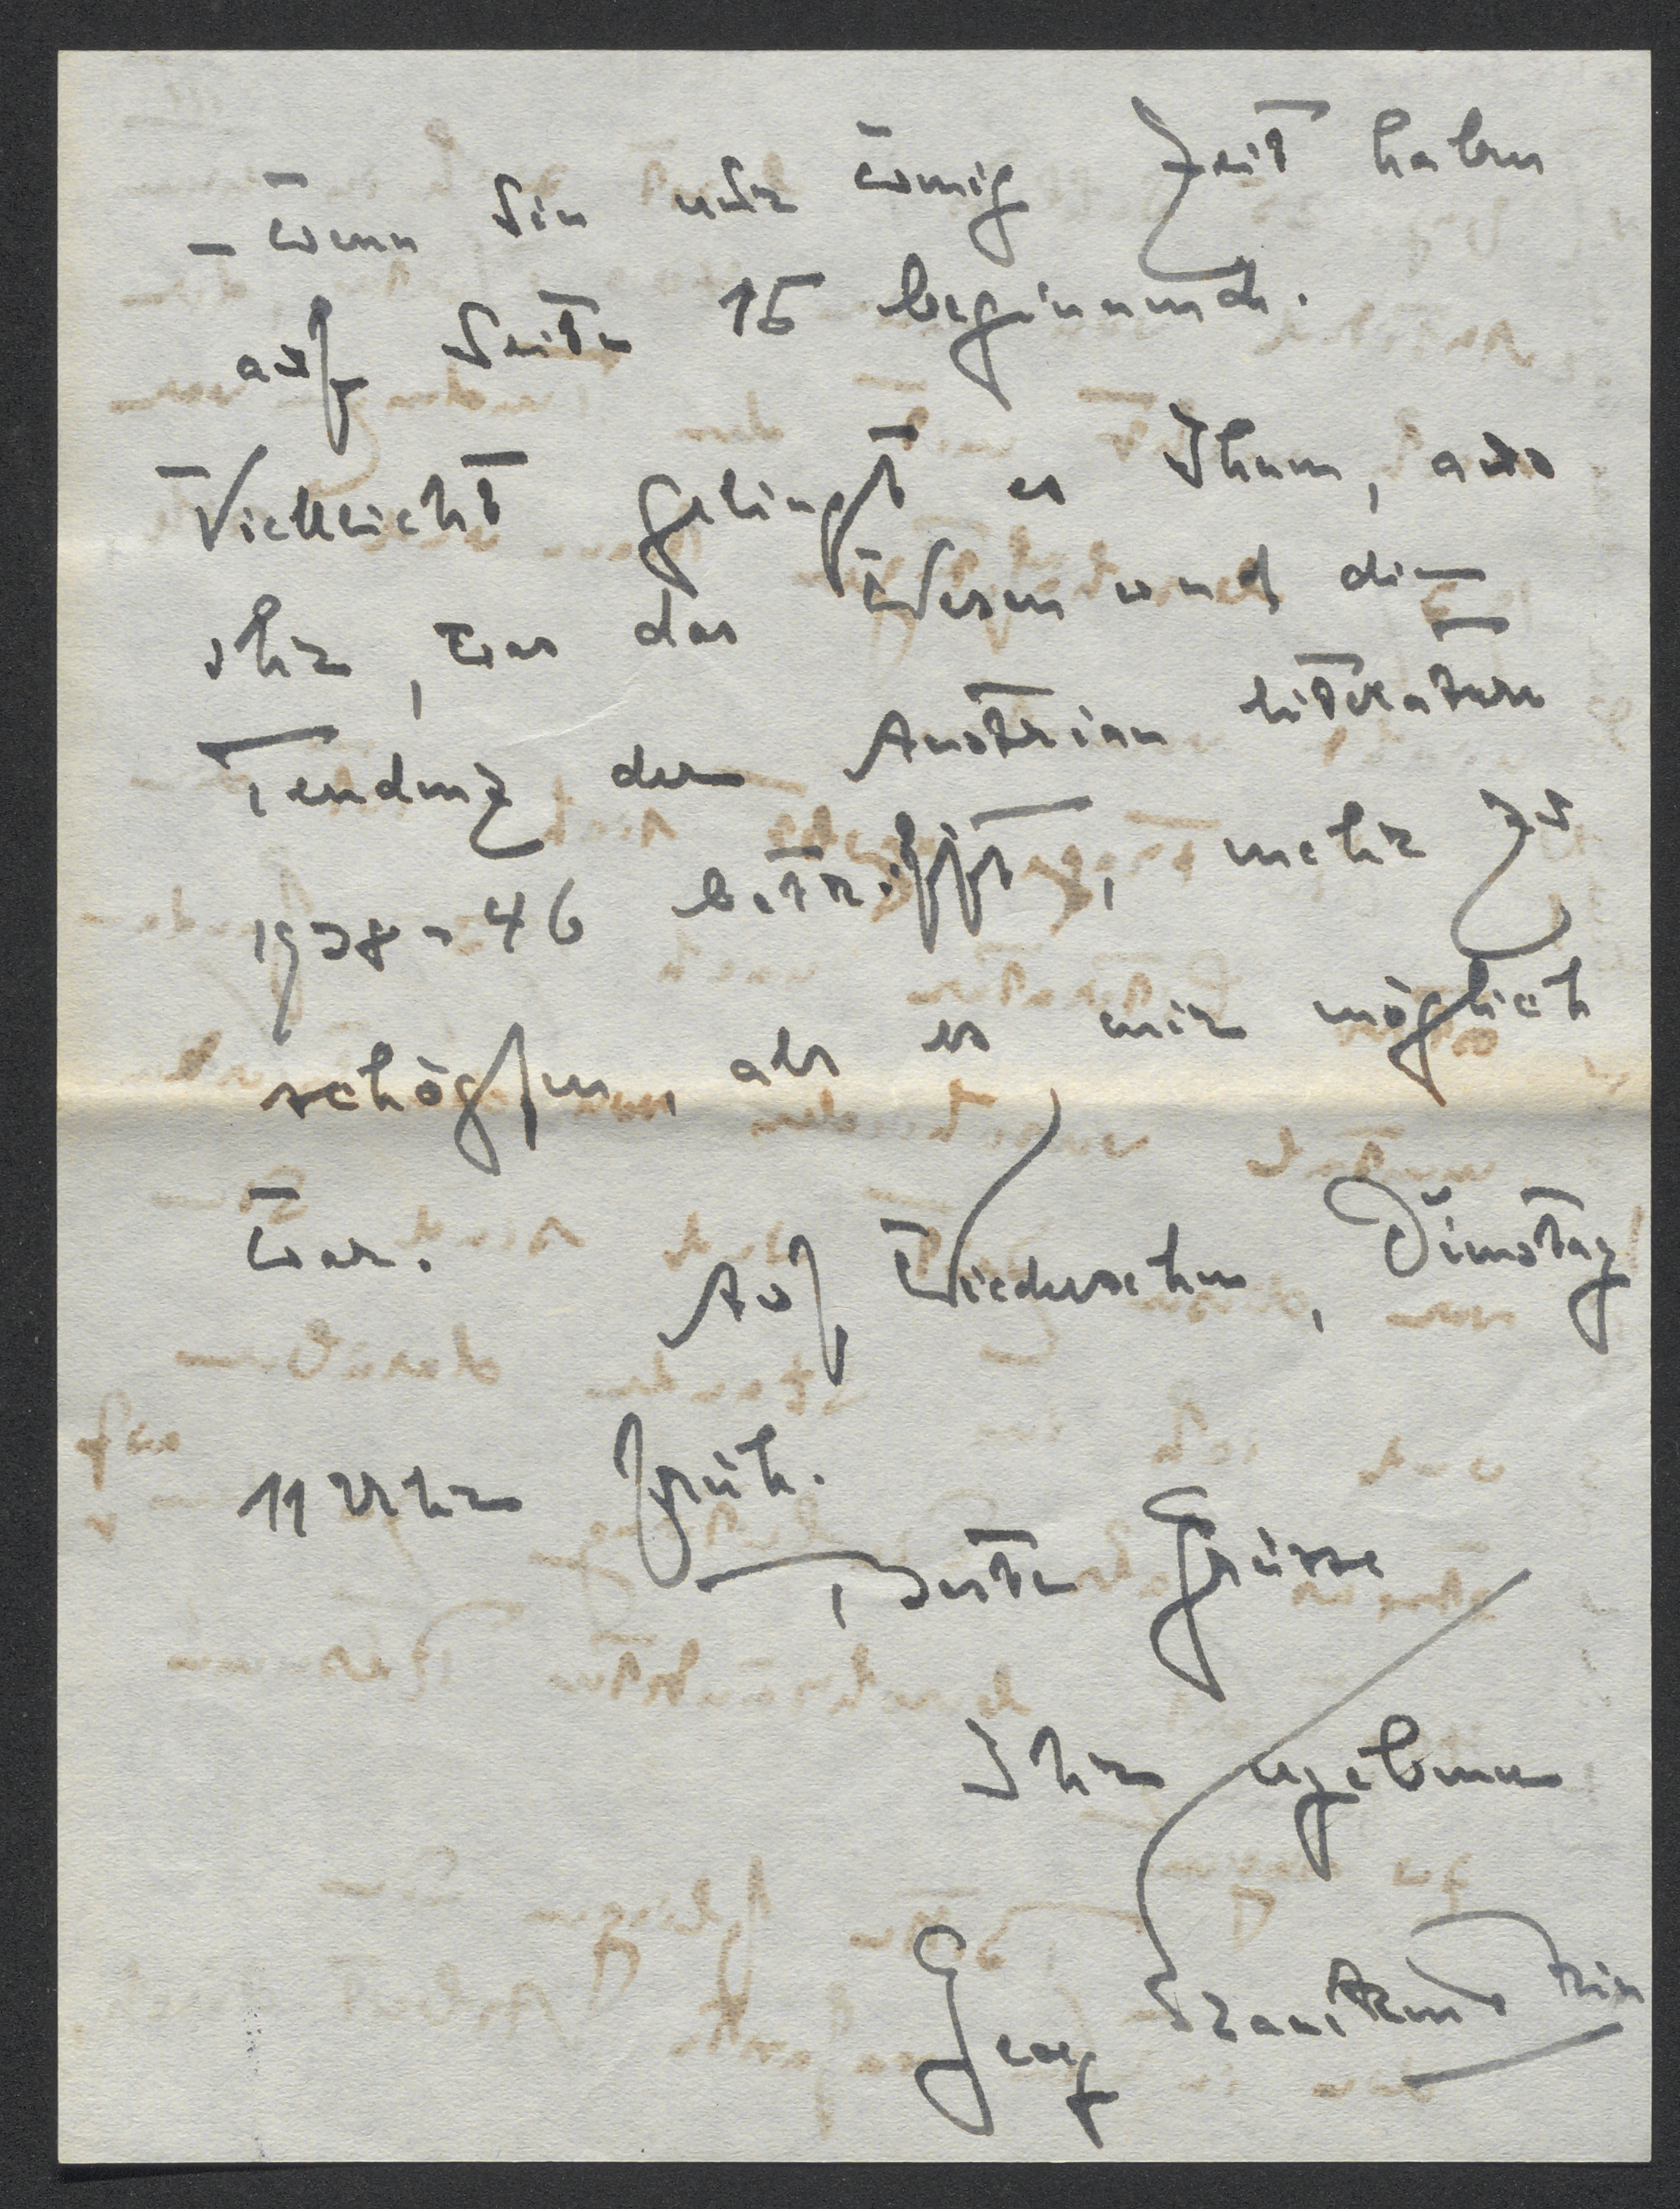 – wenn Sie nur wenig Zeit haben
auf Seite 15 beginnend.
Vielleicht gelingt es Ihnen, aus
ihr, was das Wesen und die
Tendenz der Austrian Literature
1938-46 betrifft, mehr zu
schöpfen, als es mir möglich
war.
Auf Wiedersehen, Dienstag
11 Uhr früh.
Beste Grüsse
Ihr ergebener
Graf